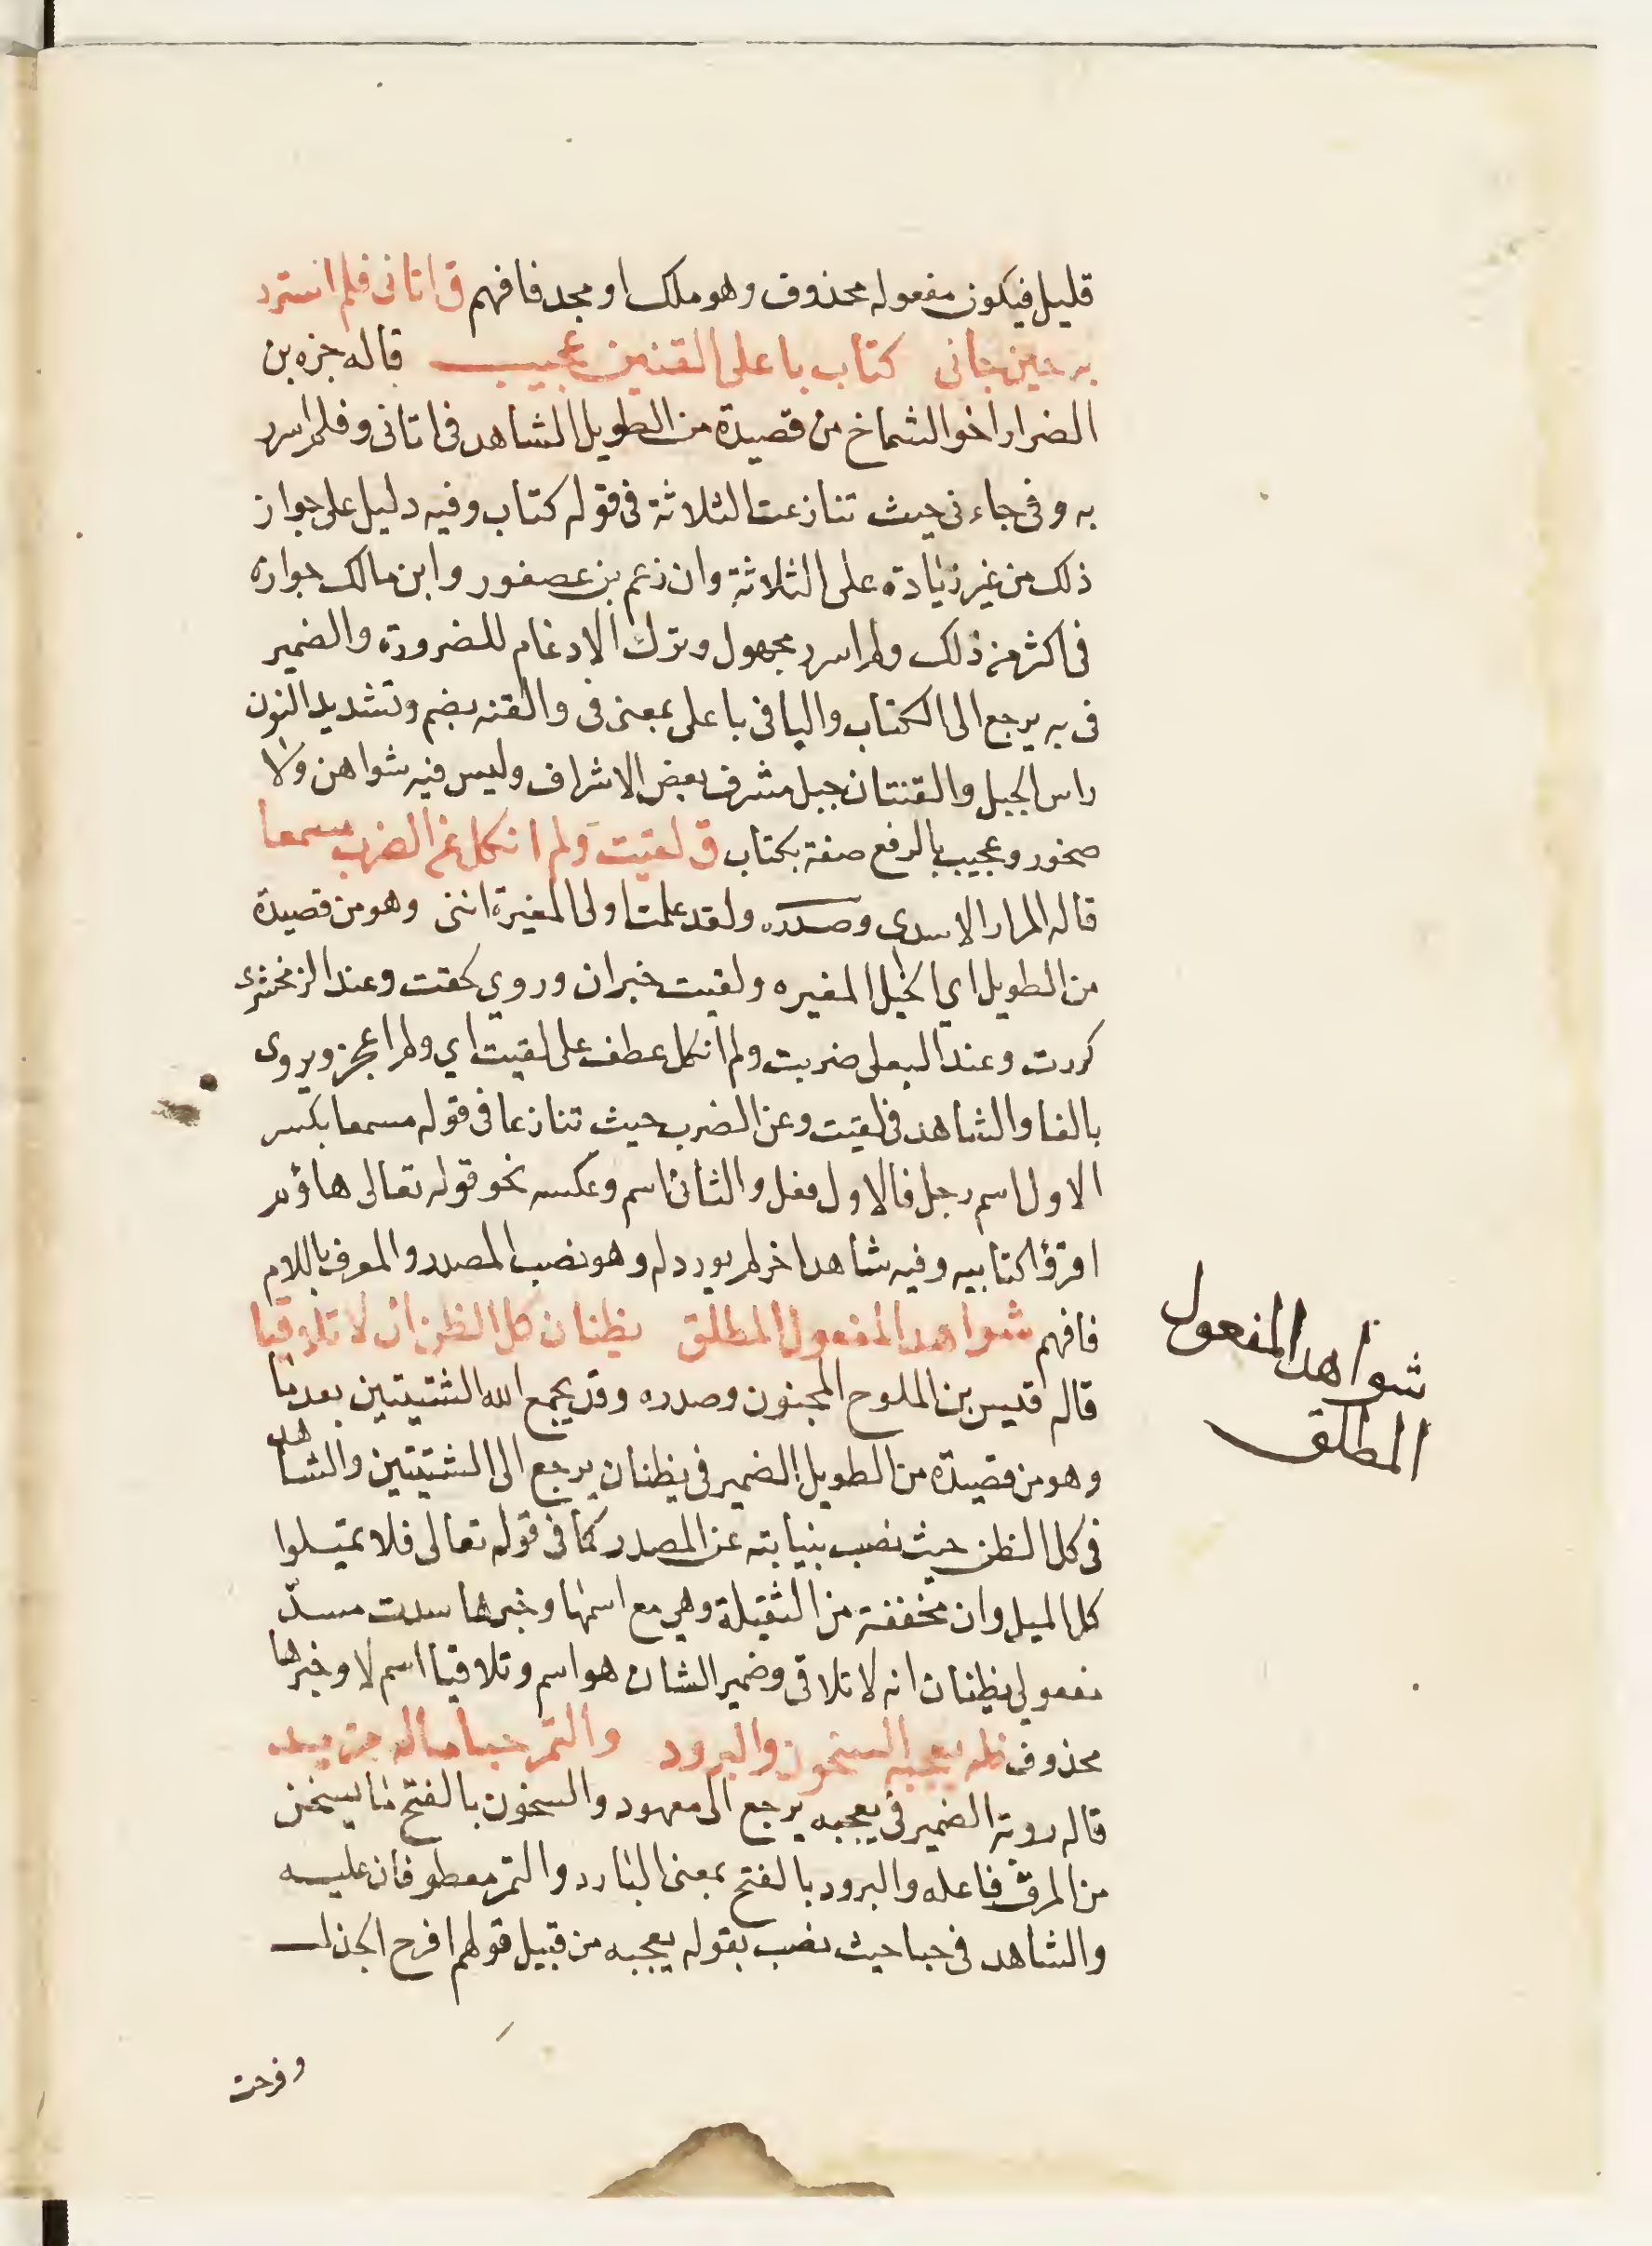 قليل فيكون مفعوله محذوف وهو ملك او مجد فافهم ق اتاني فلم اسرر
به حين جاني كتاب باعلى القنتين عجيب قاله جزء بن
الضرار اخو الشماخ من قصيدة من الطويل الشاهد في اتاني وفلم اسرر
به وفي جاءني حيث تنازعت الثلاثة في قوله كتاب وفيه دليل على جواز
ذلك من غير زيادة على الثلاثة وان زعم بن عصفور وابن مالك جوازه
في اكثر من ذلك ولم اسرر مجهول وترك الادغام للضرورة والضمير
في به يرجع الى الكتاب والبا في باعلى بمعنى في والقنه بضم وتشديد النون
راس الجبل والقنتان جبل مشرف بعض الاشراف وليس فيه شواهن ولا
صخور وعجيب بالرفع صفة بكتاب ق لقيت ولم انكل عن الضرب مسمعا
قاله المرار الاسدي وصدره ولقد علمت اولى المغيرة انني وهو من قصيدة
من الطويل اي الخيل المغيره ولقيت خبران وروي لحقت وعند الزمخشرى
كررت وعند البعلى ضربت ولم انكل عطف على لقيت اي ولم اعجز ويروى
بالفا والشاهد في لقيت وعن الضرب حيث تنازعا في قوله مسمعا بكسر
الاول اسم رجل فالاول فعل والثاني اسم وعكسه نحو قوله تعالى هاؤم
اقرؤا كتابيه وفيه شاهد اخر لم يورد له وهو نصب المصدر والمعرف باللام
فافهم شواهد المفعول المطلق يظنان كل الظن ان لا تلاقيا
قاله قيس بن الملوح المجنون وصدره وقد يجمع الله الشتيتين بعد ما
وهو من قصيدة من الطويل الضمير في يظنان يرجع الى الشتيتين والشاهد
في كل الظن حيث نصب بنيابته عن المصدر كما في قوله تعالى فلا تميلوا
كل الميل وان مخففة من الثقيلة وهي مع اسمها وخبرها سدت مسدّ
مفعولي يظنان انه لا تلاقي وضمير الشان هو اسم وتلاقيا اسم لا وخبرها
محذوف ظه يعجبه السخون والبرود والتمر حبا ماله مزيد
قاله روبة الضمير في يعجبه يرجع الى معهود والسخون بالفتح ما يسخن
من المرق فاعله والبرود بالفتح بمعنى البارد والتمر معطوفان عليه
والشاهد في حبا حيث نصب بقوله يعجبه من قبيل قولهم افرح الجذل
وفرحت
شواهد المفعول
المطلق